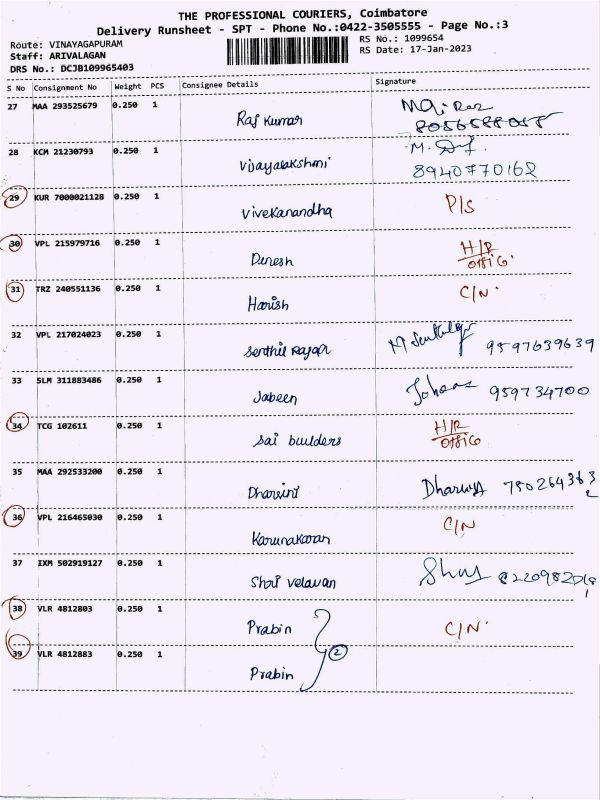 THE PROFESSIONAL COURIERS, Coimbatore
Delivery Runsheet - SPT - Phone No.:0422-3505555 - Page No.:3
Route: VINAYAGAPURAM RS No.: 1099654
Staff: ARIVALAGAN RS Date: 17-Jan-2023
DRS No.: DCJB109965403
S No Consignment No Weight PCS Consignee Details Signature
27 MAA 293525679 0.250 1 Raj Kumar
28 KCM 21230793 0.250 1 Vijayalakshmi 8940770162
29 KUR 7000021128 0.250 1 Vivekanandha P/S
30 VPL 215979716 0.250 1 Dinesh H/R
31 TRZ 240551136 0.250 1 Harish C/N
32 VPL 217024023 0.250 1 Senthil Rajan 9597639639
33 SLM 311883486 0.250 1 Jabeen 959734700
34 TCG 102611 0.250 1 Sai builders H/R
35 MAA 292533200 0.250 1 Dharsini
36 VPL 216465030 0.250 1 Karunakaran C/N
37 IXM 502919127 0.250 1 Shri Velavan
38 VLR 4812803 0.250 1 Prabin C/N
2
39 VLR 4812883 0.250 1 Prabin